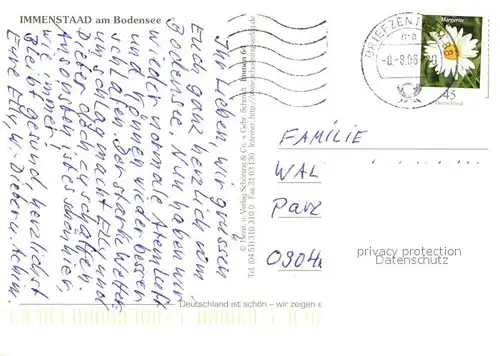 IMMENSTAAD am Bodensee
Ihr Lieben, wir grüssen
Euch ganz herzlich vom
Bodensee. Nun haben wir
wieder normale Atemluft
und können wieder besser
schlafen. Der starke Wetter-
umschlag macht Elly und
Dieter doch zu schaffen.
Ansonsten ist es schön hier
wie immer.
Bleibt gesund, herzlichst
Eure Elly, Dieter u. Achim
© Herst. u. Verlag Schöning & Co. + Gebr. Schmidt
Tel. (04 51) 310 310 0
Deutschland ist schön – wir zeigen e
BRIEFZENT
-8.-8.06
Margerite
45
Deutschland
FAMILIE
WAL
PARZ
0904
privacy protection
Datenschutz